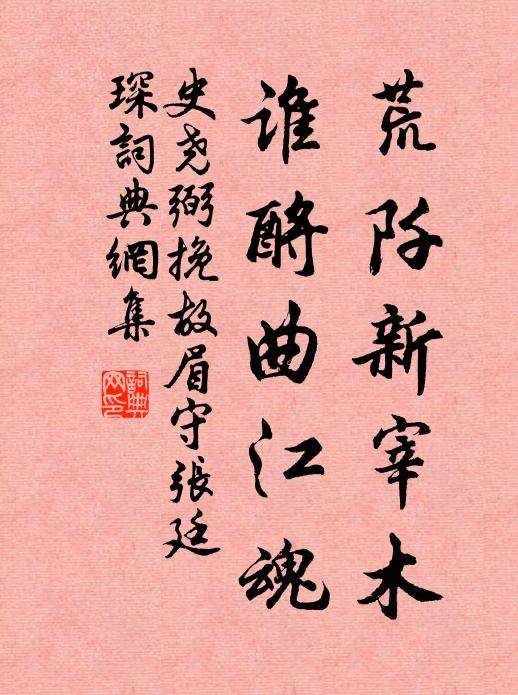 荒阡新宰木
谁酹曲江魂
史尧弼挽故眉守張廷
琛詞典網集
詞典
网印